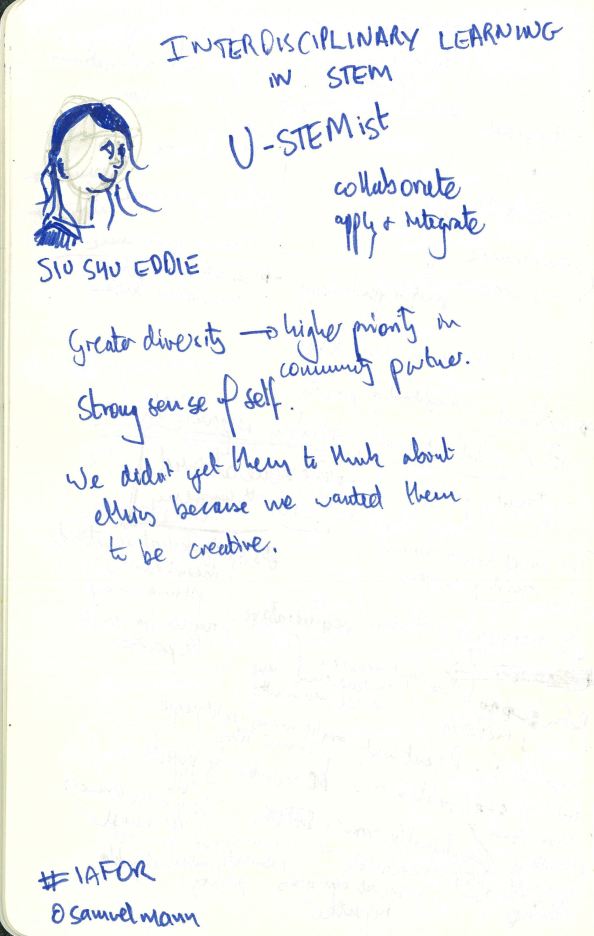 INTERDISCIPLINARY LEARNING
IN STEM
U-STEMist
collaborate
apply + integrate
SIU SYU EDDIE
Greater diversity → higher priority in
community partner.
Strong sense of self.
We didn't get them to think about
ethics because we wanted them
to be creative.
#IAFOR
@samuelmann